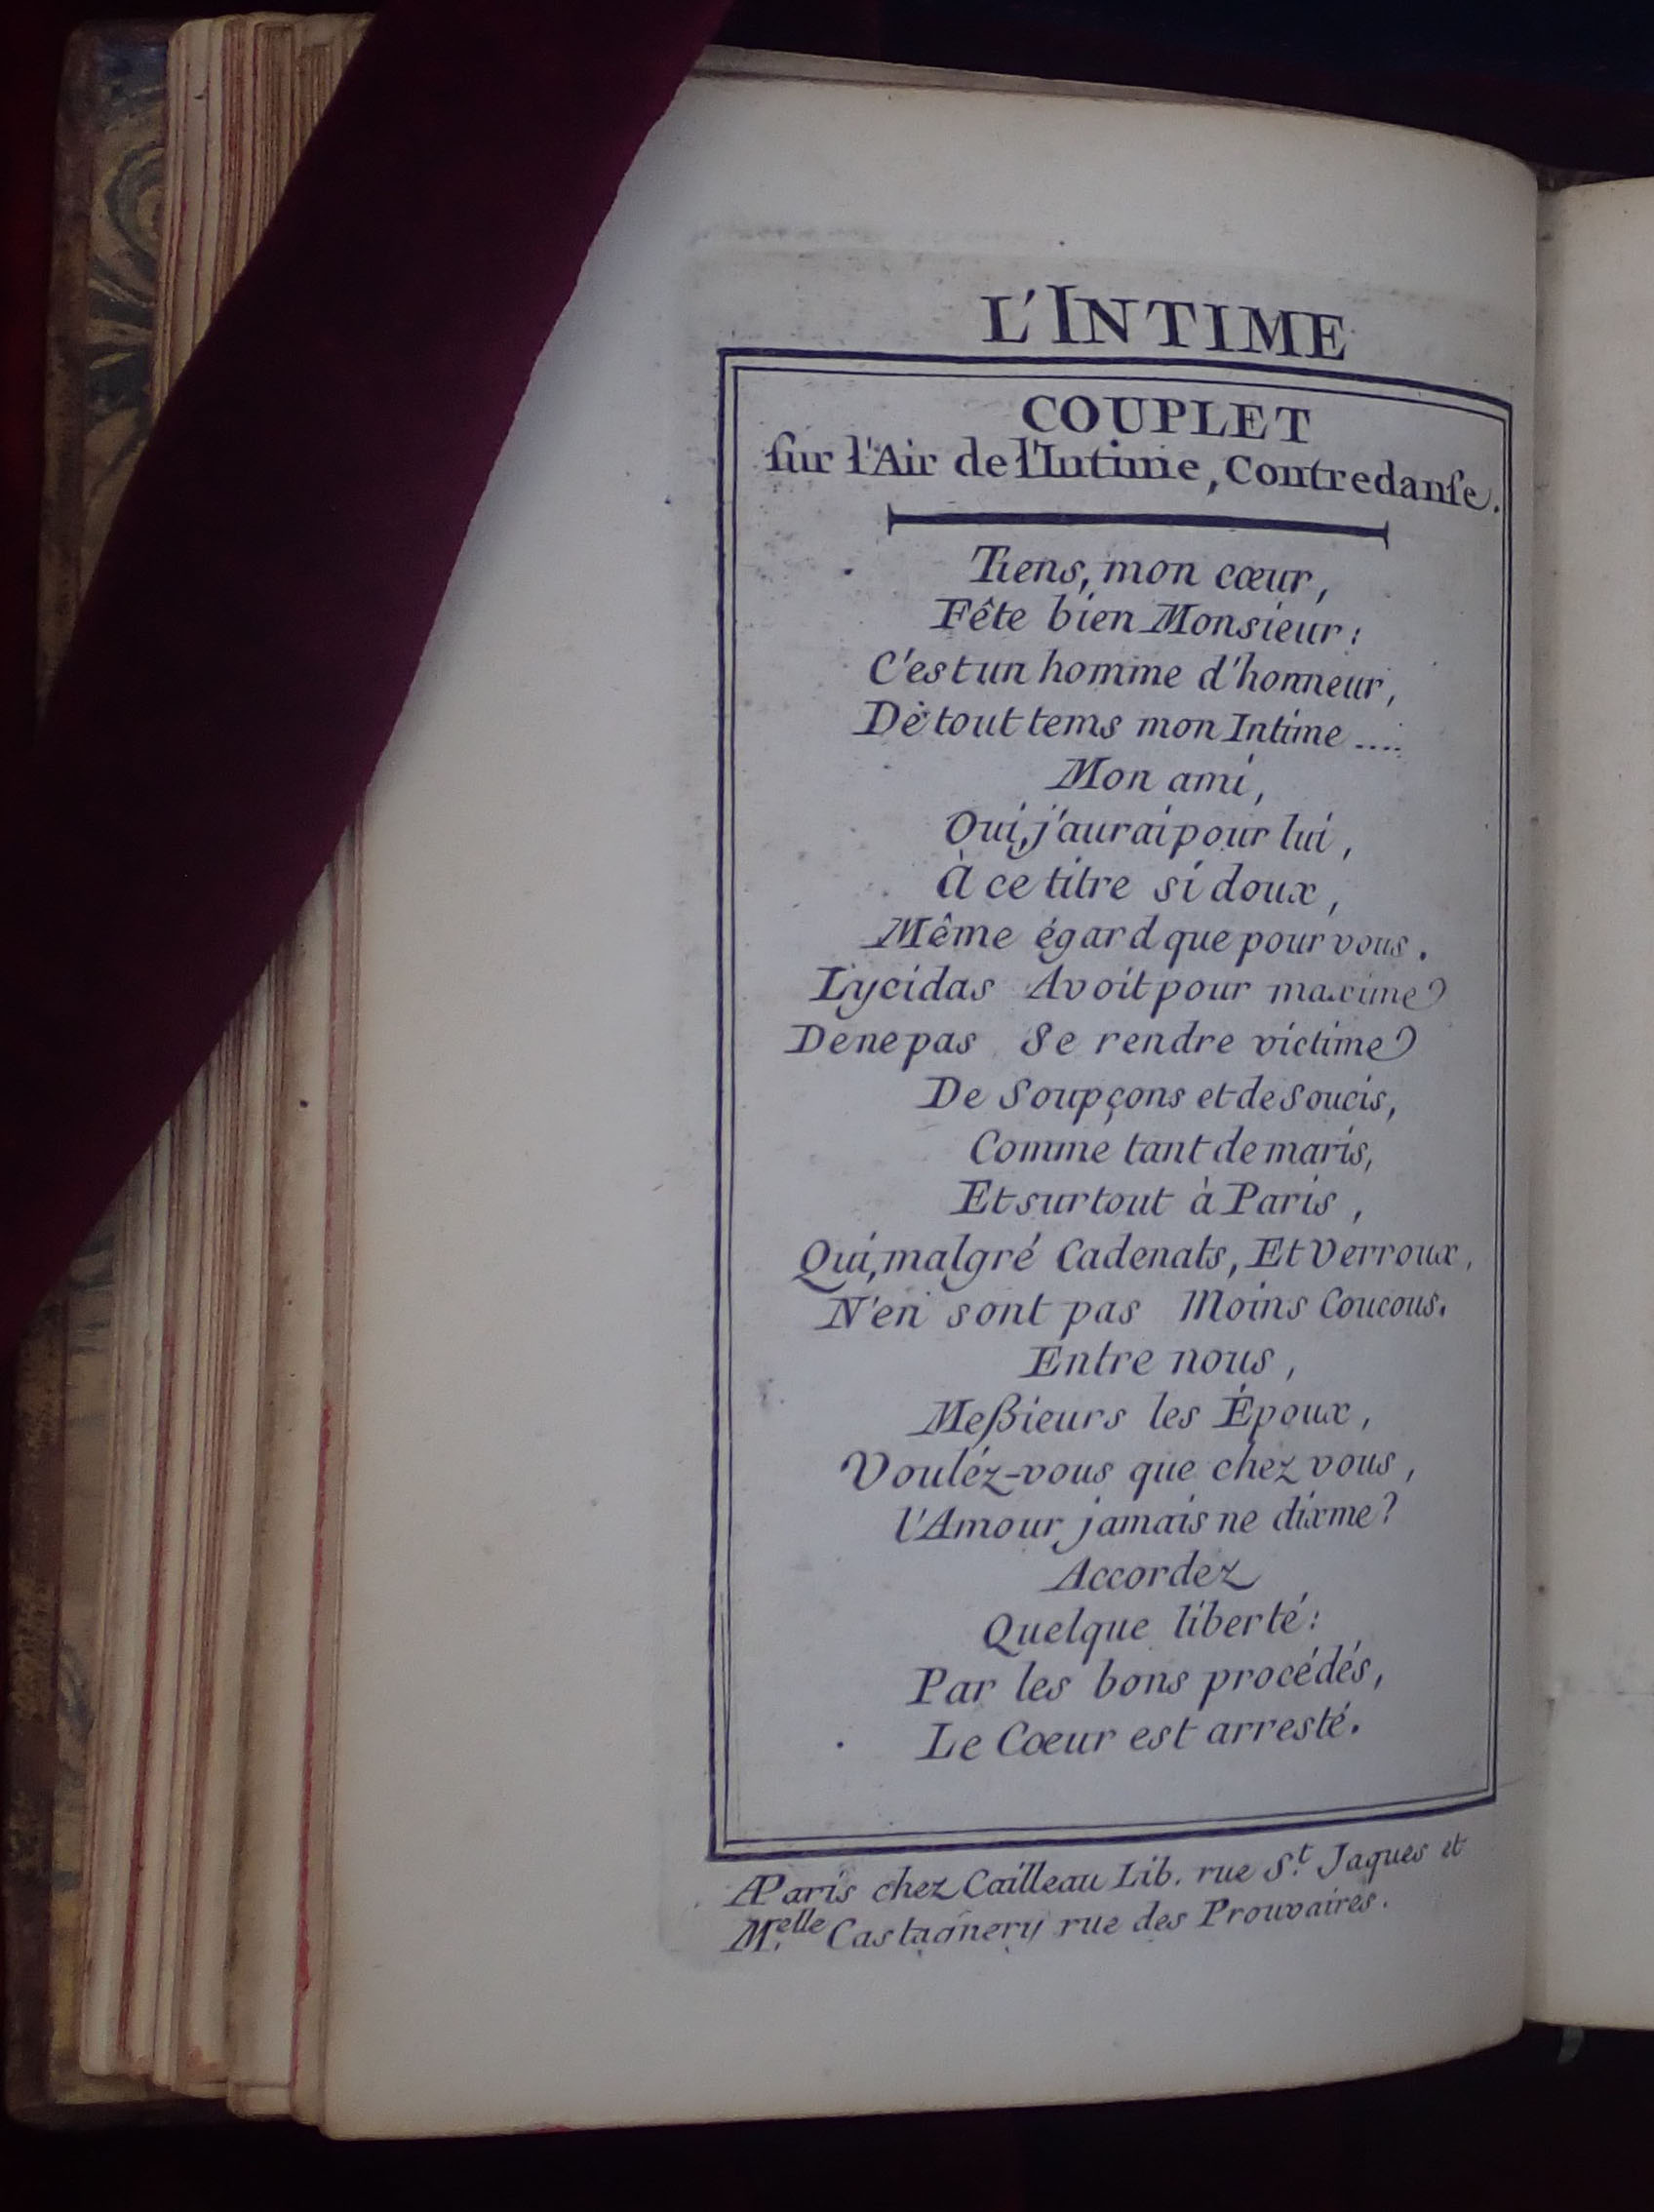 L'INTIME
COUPLET
ſur l'Air de l'Intime, Contredanſe.
Tiens, mon cœur,
Fête bien Monsieur:
C'est un homme d'honneur,
De tout tems mon Intime ....
Mon ami,
Oui, j'aurai pour lui,
À ce titre si doux,
Même égard que pour vous.
Lycidas Avoit pour maxime
De ne pas Se rendre victime
De Soupçons et de Soucis,
Comme tant de maris,
Et surtout à Paris,
Qui, malgré Cadenats, Et Verroux,
N'en sont pas Moins Coucous.
Entre nous,
Meßieurs les Époux,
Vouléz-vous que chez vous,
l'Amour jamais ne dixme?
Accordez
Quelque liberté:
Par les bons procédés,
Le Cœur est arresté.
A Paris chez Cailleau Lib. rue S.t Jaques et
M.elle Castagnery rue des Prouvaires.